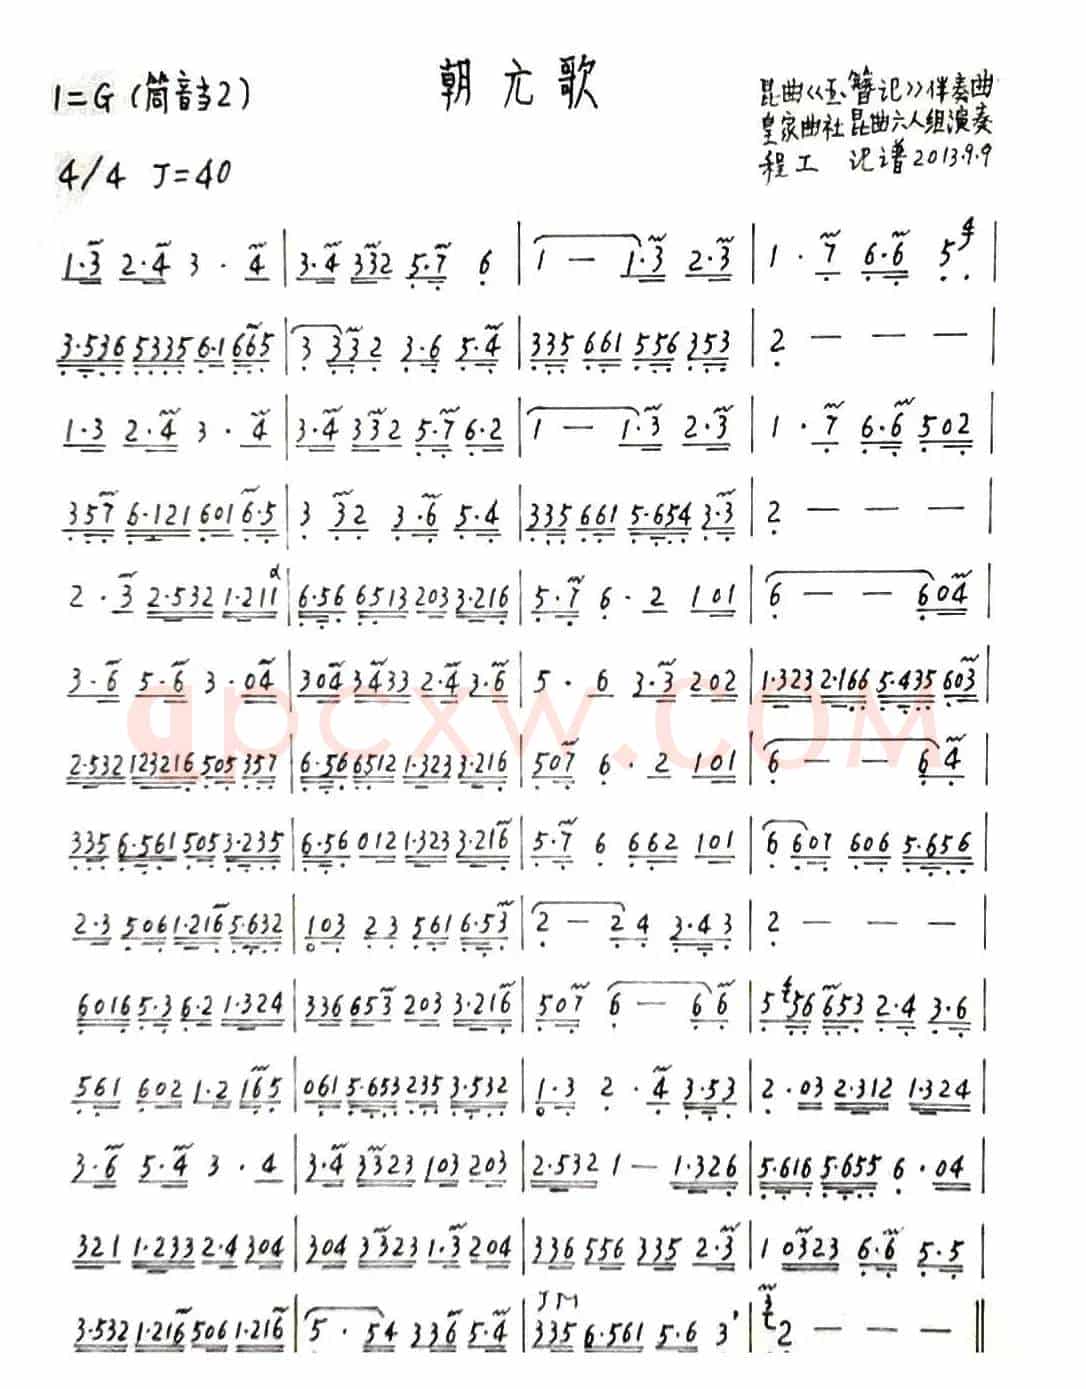 朝元歌
1=G (筒音当2)
昆曲《玉簪记》伴奏曲
皇家曲社昆曲六人组演奏
4/4 J=40
程工 记谱 2013.9.9
1·3 2·4 3 · 4 | 3·4 332 5·7 6 | 1 — 1·3 2·3 | 1 · 7 6·6 5 |
3·536 5335 6·1 665 | 3 332 3·6 5·4 | 335 661 556 353 | 2 — — — |
1·3 2·4 3 · 4 | 3·4 332 5·7 6·2 | 1 — 1·3 2·3 | 1 · 7 6·6 502 |
357 6·121 601 6·5 | 3 32 3·6 5·4 | 335 661 5·654 3·3 | 2 — — — |
2 · 3 2·532 1·211 | 6·56 6513 203 3·216 | 5·7 6 · 2 101 | 6 — — 604 |
3·6 5·6 3·04 | 304 3433 2·4 3·6 | 5 · 6 3·3 202 | 1·323 2·166 5·435 603 |
2·532 123216 505 357 | 6·56 6512 1·323 3·216 | 507 6 · 2 101 | 6 — — 64 |
335 6·561 505 3·235 | 6·56 012 1·323 3·216 | 5·7 6 662 101 | 6 607 606 5·656 |
2·3 506 1·216 5·632 | 103 23 561 6·53 | 2 — 24 3·43 | 2 — — — |
6016 5·3 6·2 1·324 | 336 653 203 3·216 | 507 6 — 66 | 5 56 653 2·4 3·6 |
561 602 1·2 165 | 061 5·653 235 3·532 | 1·3 2 · 4 3·53 | 2·03 2·312 1·324 |
3·6 5·4 3 · 4 | 3·4 3323 103 203 | 2·532 1 — 1·326 | 5·616 5·655 6·04 |
321 1·233 2·4 304 | 304 3323 1·3 204 | 336 556 335 2·3 | 1 0323 6·6 5·5 |
3·532 1·216 506 1·216 | 5 · 54 336 5·4 | 335 6·561 5·6 3' | 2 — — — ||
qpcxw.com